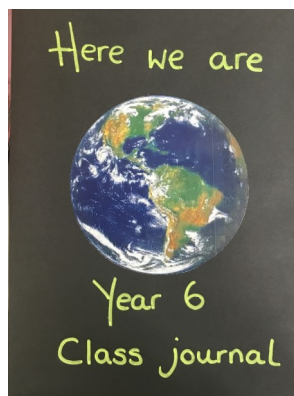 Here we are
Year 6
Class journal